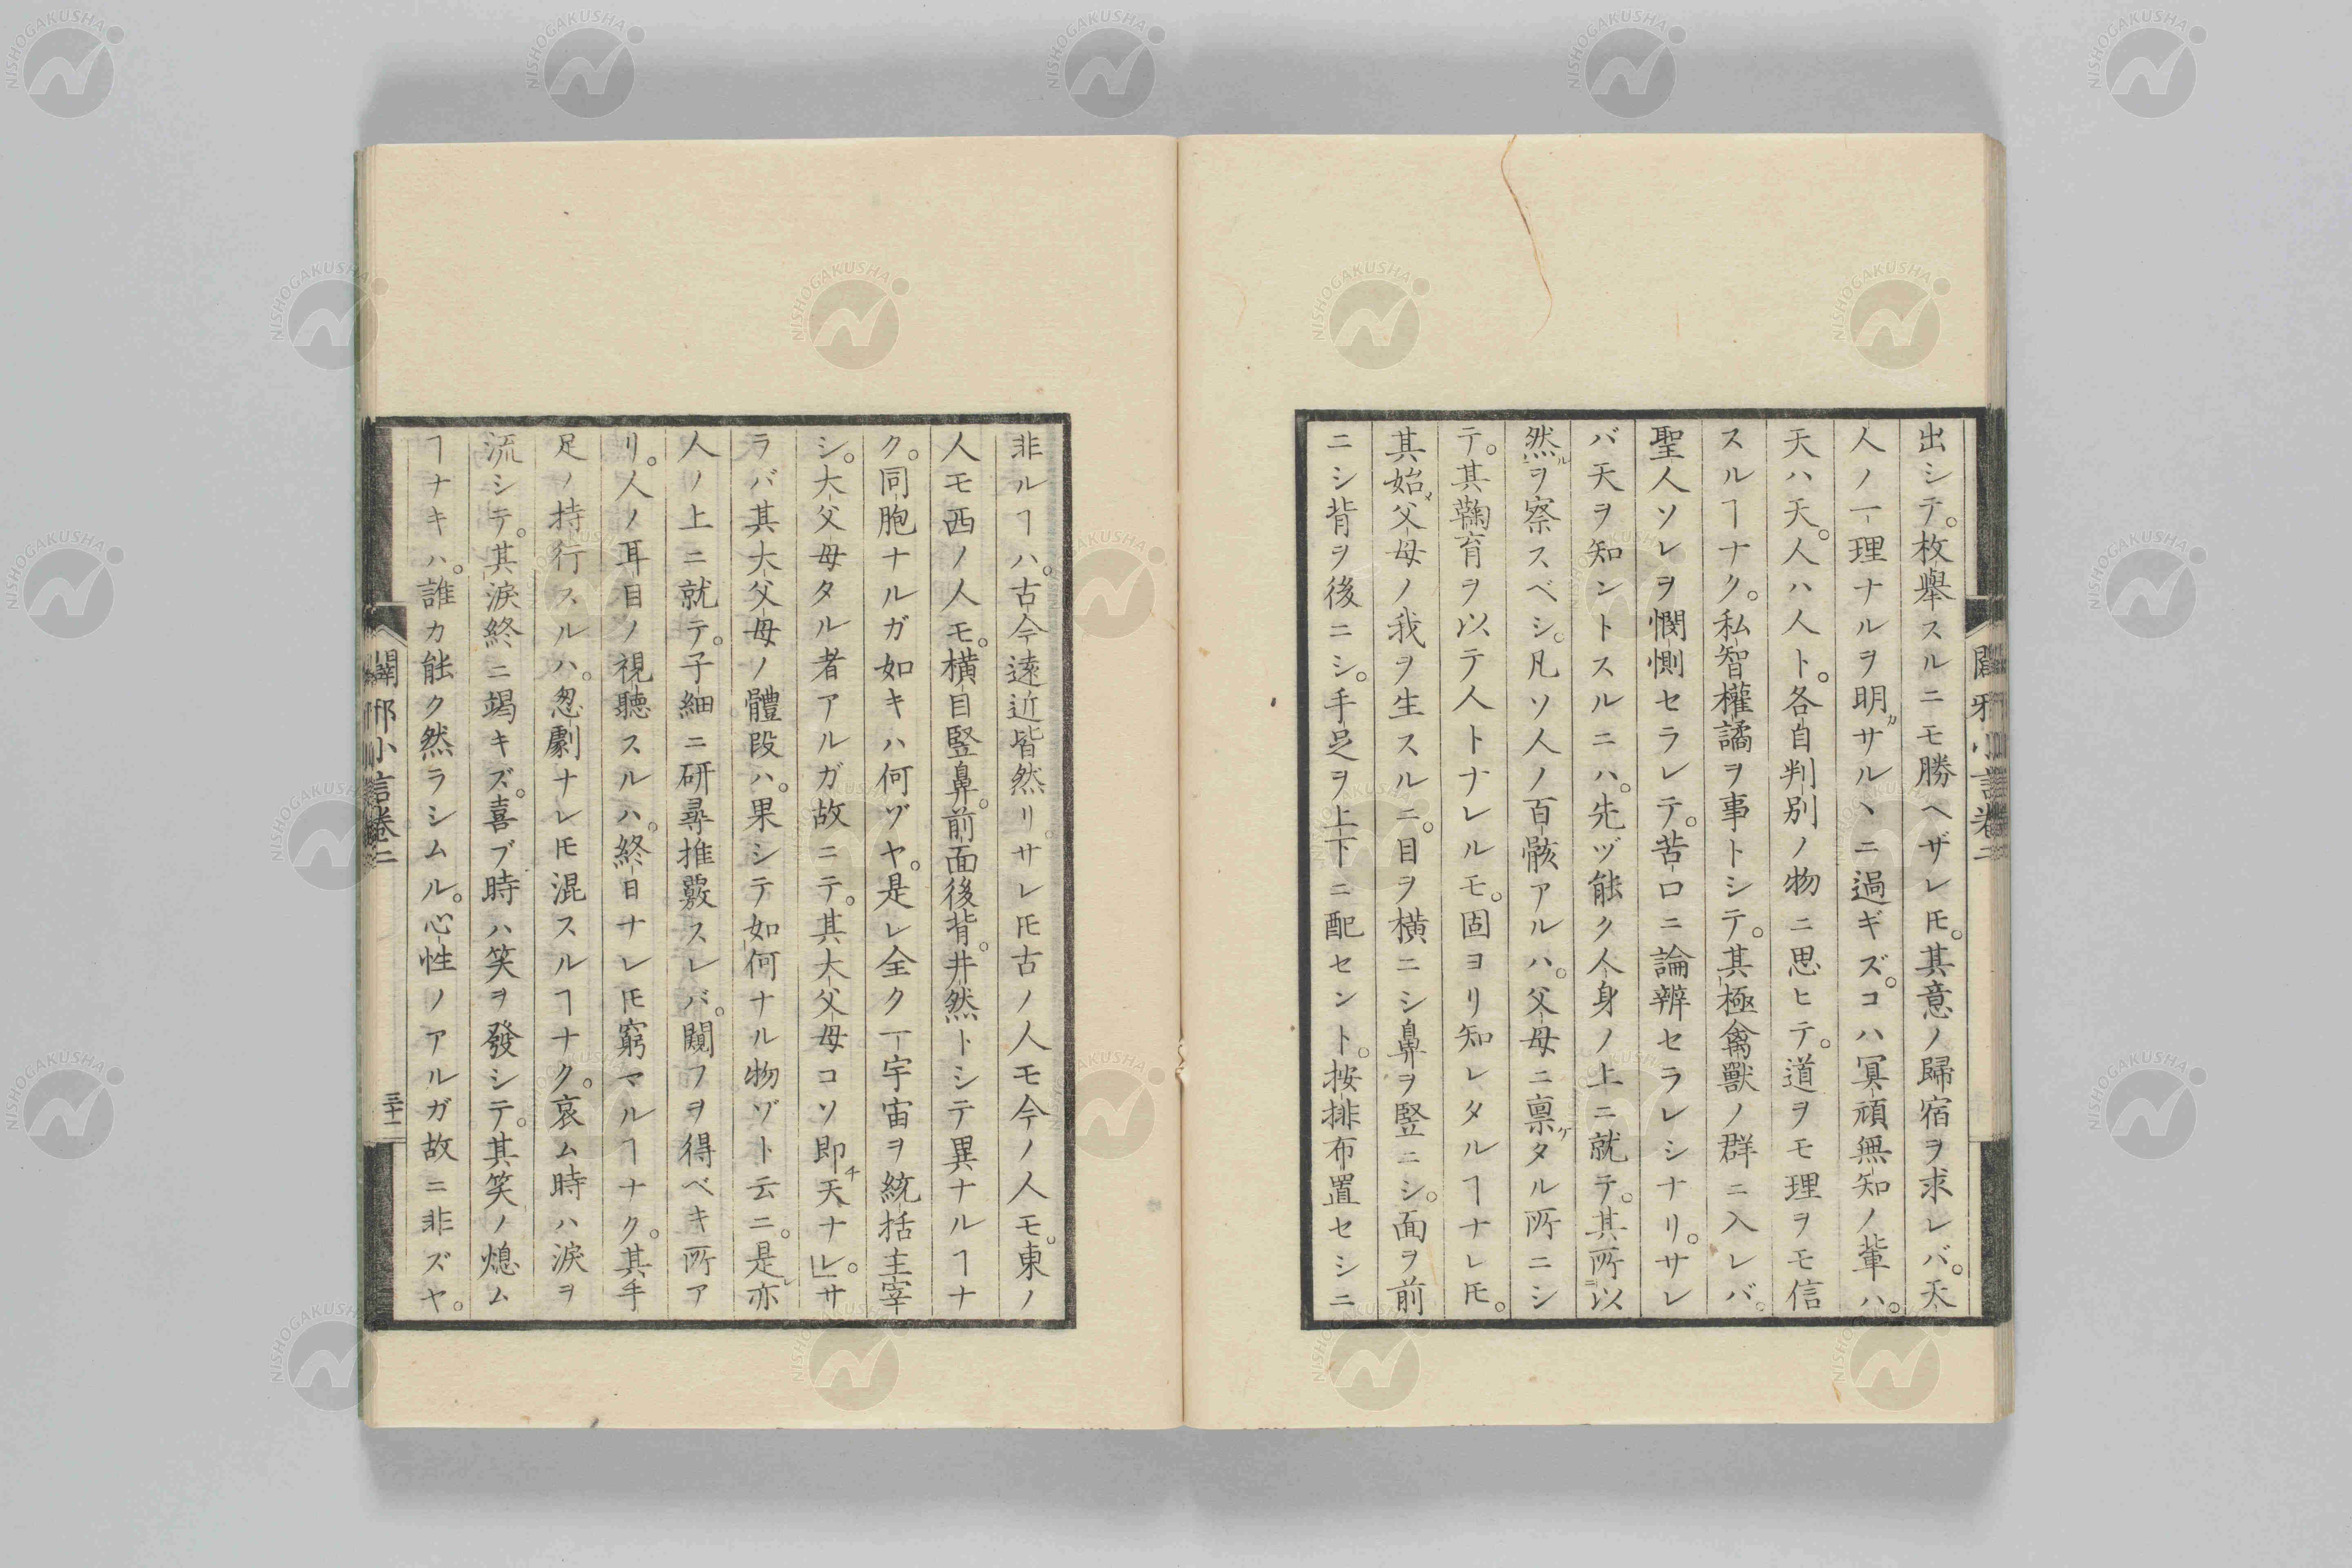 出シテ。枚舉スルニモ勝ヘザレ𪜈。其意ノ歸宿ヲ求レバ。天
人ノ一理ナルヲ明カサルヽニ過ギズ。コハ冥頑無知ノ輩ハ。
天ハ天。人ハ人ト。各自判別ノ物ニ思ヒテ。道ヲモ理ヲモ信
スルヿナク。私智權譎ヲ事トシテ。其極禽獸ノ群ニ入レバ。
聖人ソレヲ憫惻セラレテ。苦口ニ論辨セラレシナリ。サレ
バ天ヲ知ントスルニハ。先ヅ能ク人身ノ上ニ就テ。其所以
然ルヲ察スベシ。凡ソ人ノ百骸アルハ。父母ニ禀ケタル所ニシ
テ。其鞠育ヲ以テ人トナレルモ。固ヨリ知レタルヿナレ𪜈。
其始メ父母ノ我ヲ生スルニ。目ヲ橫ニシ鼻ヲ竪ニシ。面ヲ前
ニシ背ヲ後ニシ。手足ヲ上下ニ配セント。按排布置セシニ
非ルヿハ。古今遠近皆然リ。サレ𪜈古ノ人モ今ノ人モ。東ノ
人モ西ノ人モ。橫目竪鼻。前面後背。井然トシテ異ナルヿナ
ク。同胞ナルガ如キハ何ヅヤ。是レ全ク一宇宙ヲ統括主宰
シ。大父母タル者アルガ故ニテ。其大父母コソ即チ天ナレ」。サ
ラバ其大父母ノ體段ハ。果シテ如何ナル物ゾト云ニ。是レ亦
人ノ上ニ就テ。子細ニ研尋推覈スレバ。闚フヲ得ベキ所ア
リ。人ノ耳目ノ視聽スルハ。終日ナレ𪜈窮マルヿナク。其手
足ノ持行スルハ。怱劇ナレ𪜈混スルヿナク。哀ム時ハ淚ヲ
流シテ。其淚終ニ竭キズ。喜ブ時ハ笑ヲ發シテ。其笑ノ熄ム
ヿナキハ。誰カ能ク然ラシムル。心性ノアルガ故ニ非ズヤ。
NISHOGAKUSHA